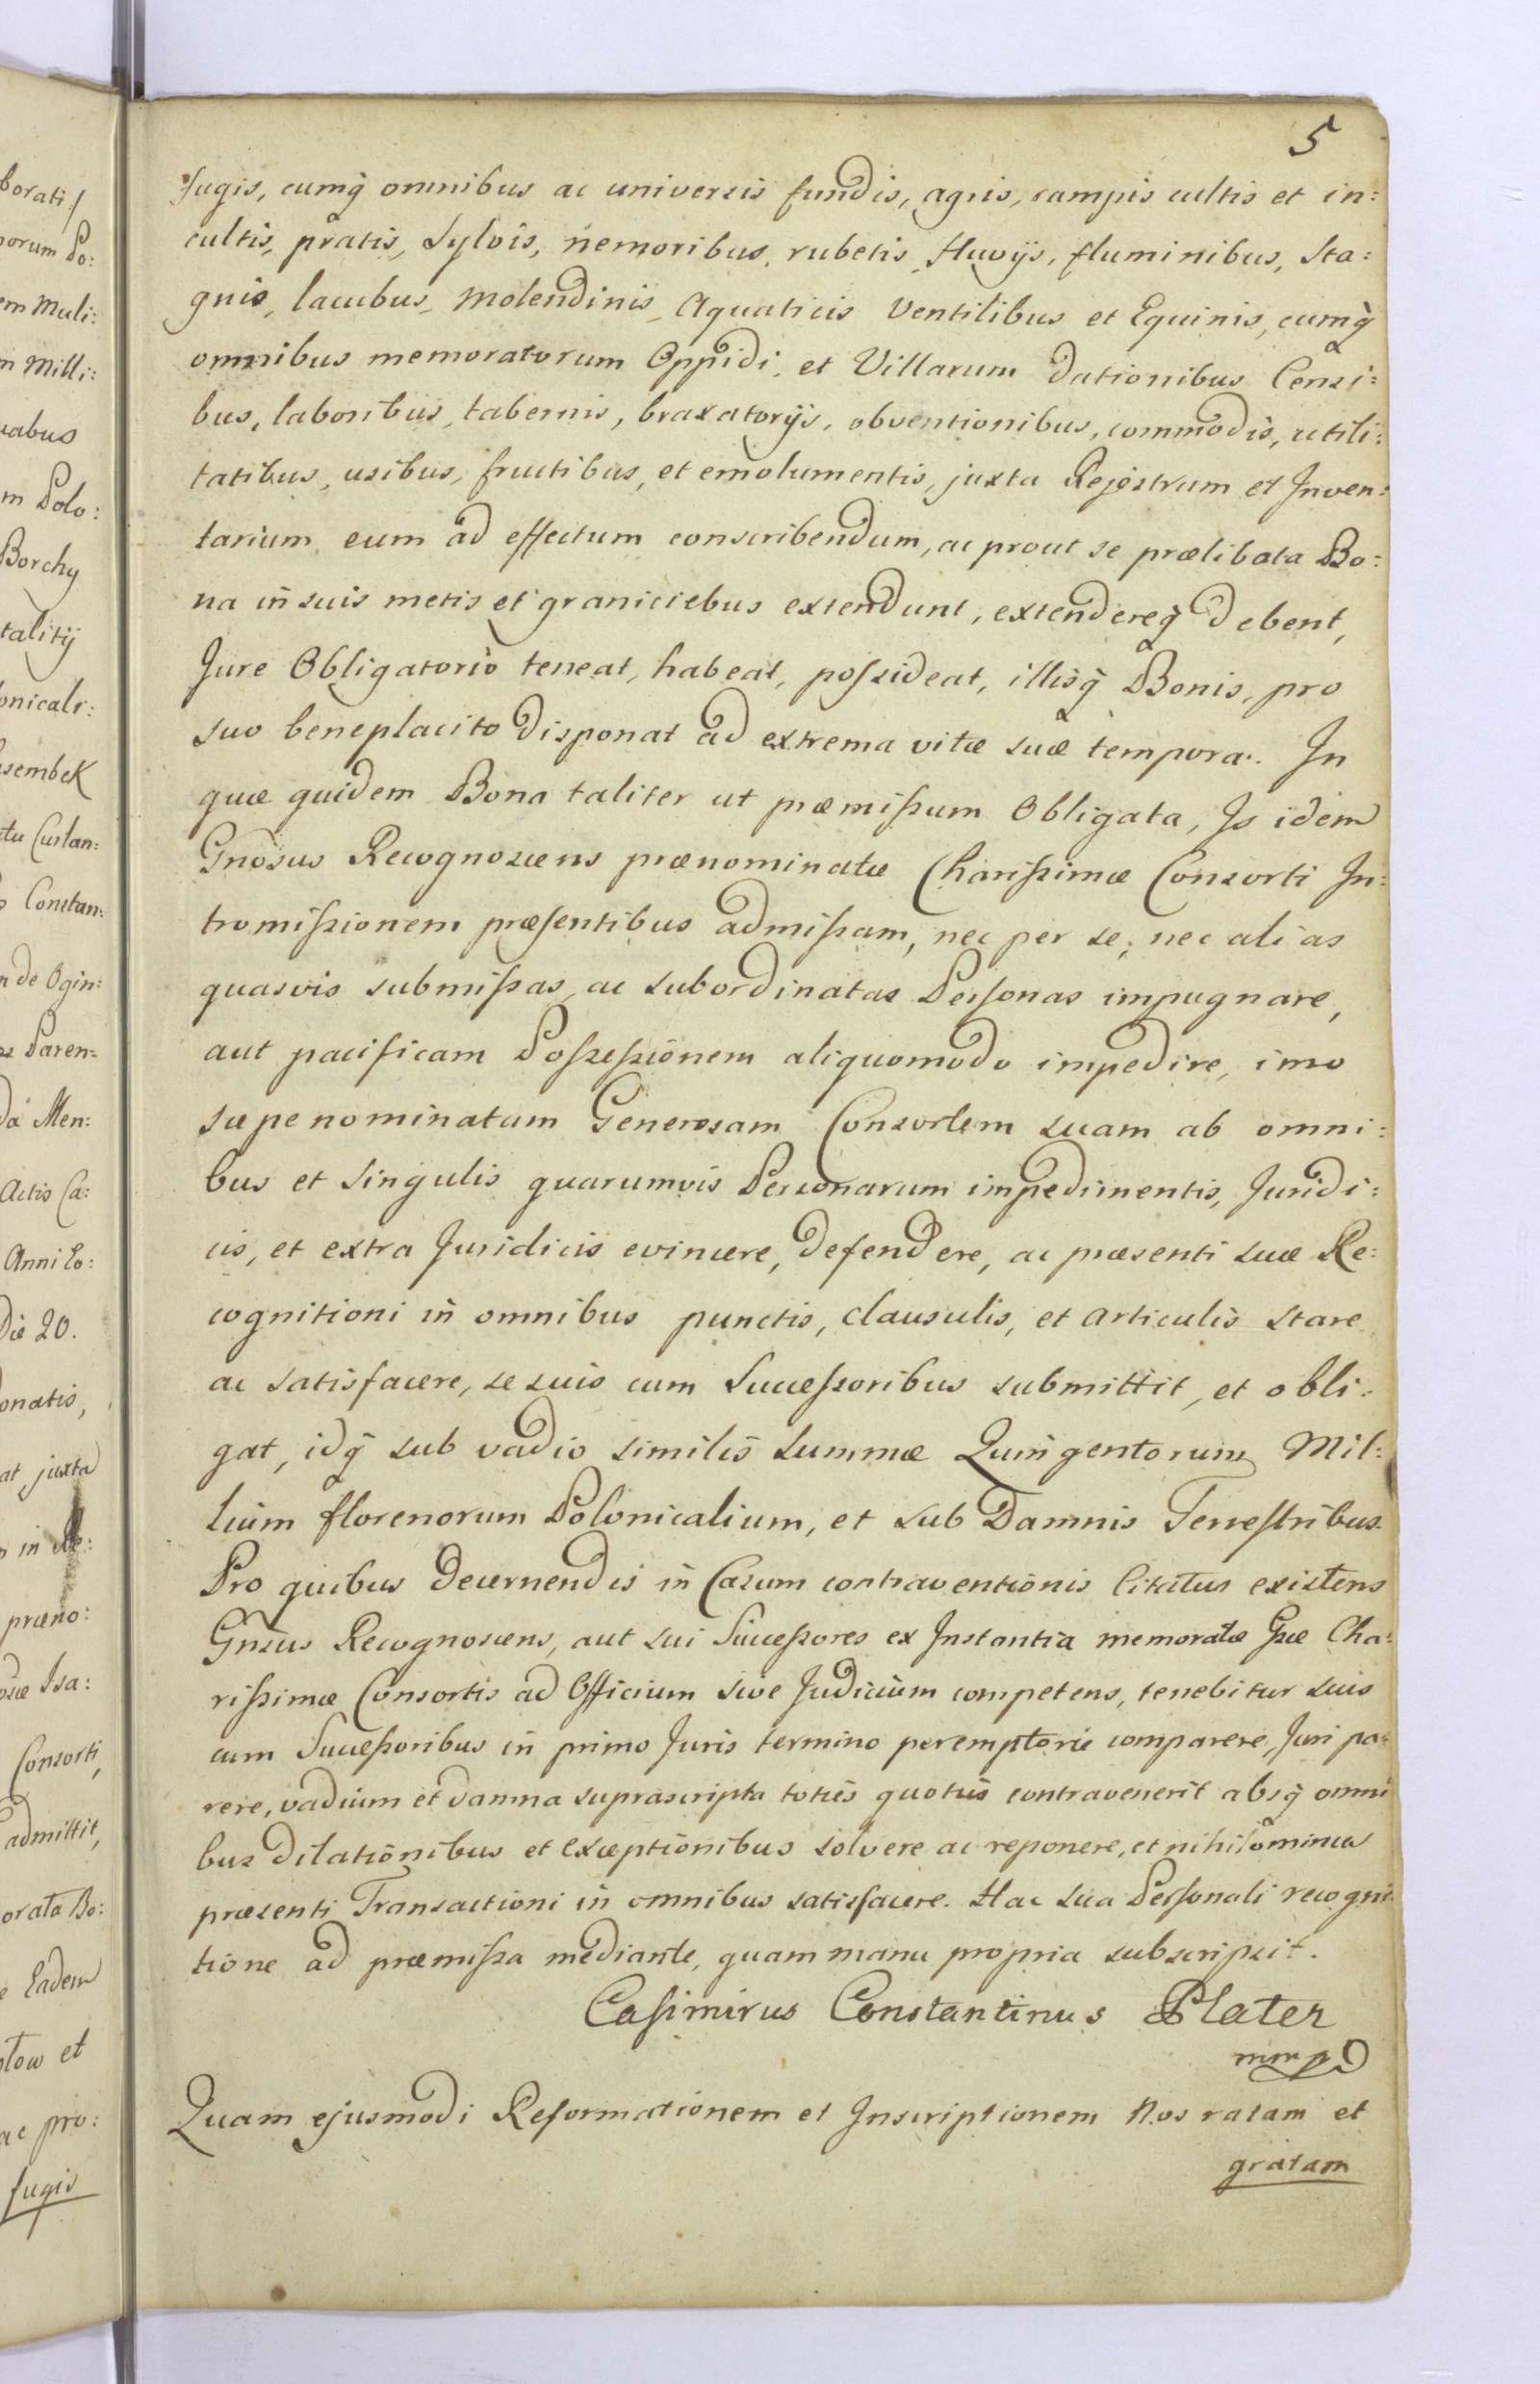 5
fugis, cumq̀ omnibus ac universis fundis, agris, campis cultis et in:
cultis, pratis, Sylvis, nemoribus, rubetis, fluvijs, fluminibus, Sta:
gnis, lacubus, Molendinis, Aquaticis Ventilibus et Equinis, cumq̀
omnibus memoratorum Oppidi, et Villarum dationibus Censi:
bus, laboribus, tabernis, braxatorijs, obventionibus, commodis, utili:
tatibus, usibus, fructibus, et emolumentis, juxta Regestrum et Inven:
tarium eum ad effectum conscribendum, ac prout se prælibata Bo:
na in suis metis et graniciebus extendunt, extendereq̀ debent,
Jure Obligatorio teneat, habeat, possideat, illisq̀ Bonis, pro
suo beneplacito disponat ad extrema vitæ suæ tempora. In
quæ quidem Bona taliter ut præmissum Obligata, Is idem
Gnosus Recognoscens prænominatæ Charissimæ Consorti In:
tromissionem præsentibus admissam, nec per se, nec alias
quasvis submissas, ac subordinatas Personas impugnare,
aut pacificam Possessionem aliquomodo impedire, imo
sæpe nominatam Generosam Consortem suam ab omni:
bus et singulis quarumvis Personarum impedimentis, Juridi:
cis, et extra Juridicis evincere, defendere, ac præsenti suæ Re:
cognitioni in omnibus punctis, clausulis, et articulis stare
ac satisfacere, se suis cum Successoribus submittit, et obli:
gat, idq̀ sub vadio similis summæ Quingentorum Mil:
lium florenorum Polonicalium, et sub Damnis Terrestribus.
Pro quibus decernendis in Casum contraventionis Citatus existens
Gnsus Recognoscens, aut sui Successores ex Instantia memoratæ Gsæ Cha:
rissimæ Consortis ad Officium sive Judicium competens, tenebitur suis
cum Successoribus in primo Juris termino peremptorie comparere, Juri pa:
rere, vadium et damna suprascripta toties quoties contravenerit absq̀ omni
bus dilationibus et exceptionibus solvere ac reponere, et nihilominus
præsenti Transactioni in omnibus satisfacere. Hac sua Personali recogni
tione ad præmissa mediante, quam manu propria subscripsit.
Casimirus Constantinus Plater
mmp
Quam ejusmodi Reformationem et Inscriptionem Nos ratam et
gratam